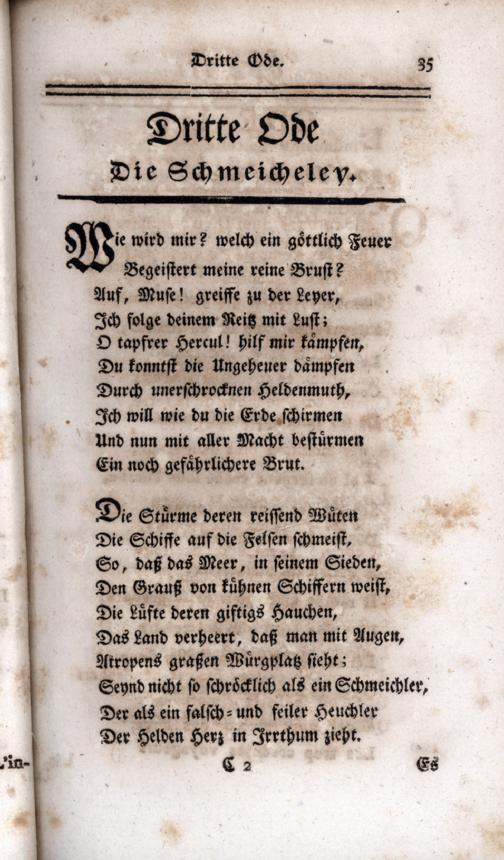 Dritte Ode. 35
Dritte Ode
Die Schmeicheley.
Wie wird mir? welch ein göttlich Feuer
Begeistert meine reine Brust?
Auf, Muse! greiffe zu der Leyer,
Ich folge deinem Reitz mit Lust;
O tapfrer Hercul! hilf mir kämpfen,
Du konntst die Ungeheuer dämpfen
Durch unerschrocknen Heldenmuth,
Ich will wie du die Erde schirmen
Und nun mit aller Macht bestürmen
Ein noch gefährlichere Brut.
Die Stürme deren reissend Wüten
Die Schiffe auf die Felsen schmeist,
So, daß das Meer, in seinem Sieden,
Den Grauß von kühnen Schiffern weist,
Die Lüfte deren giftigs Hauchen,
Das Land verheert, daß man mit Augen,
Atropens graßen Würgplatz sieht;
Seynd nicht so schröcklich als ein Schmeichler,
Der als ein falsch- und feiler Heuchler
Der Helden Herz in Irrthum zieht.
C 2 Es
in-